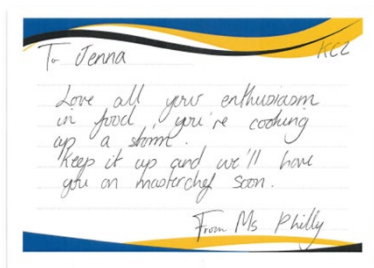 To Jenna
KCZ
Love all your enthusiasm
in food, you're cooking
up a storm.
Keep it up and we'll have
you on masterchef soon.
From Ms Philly